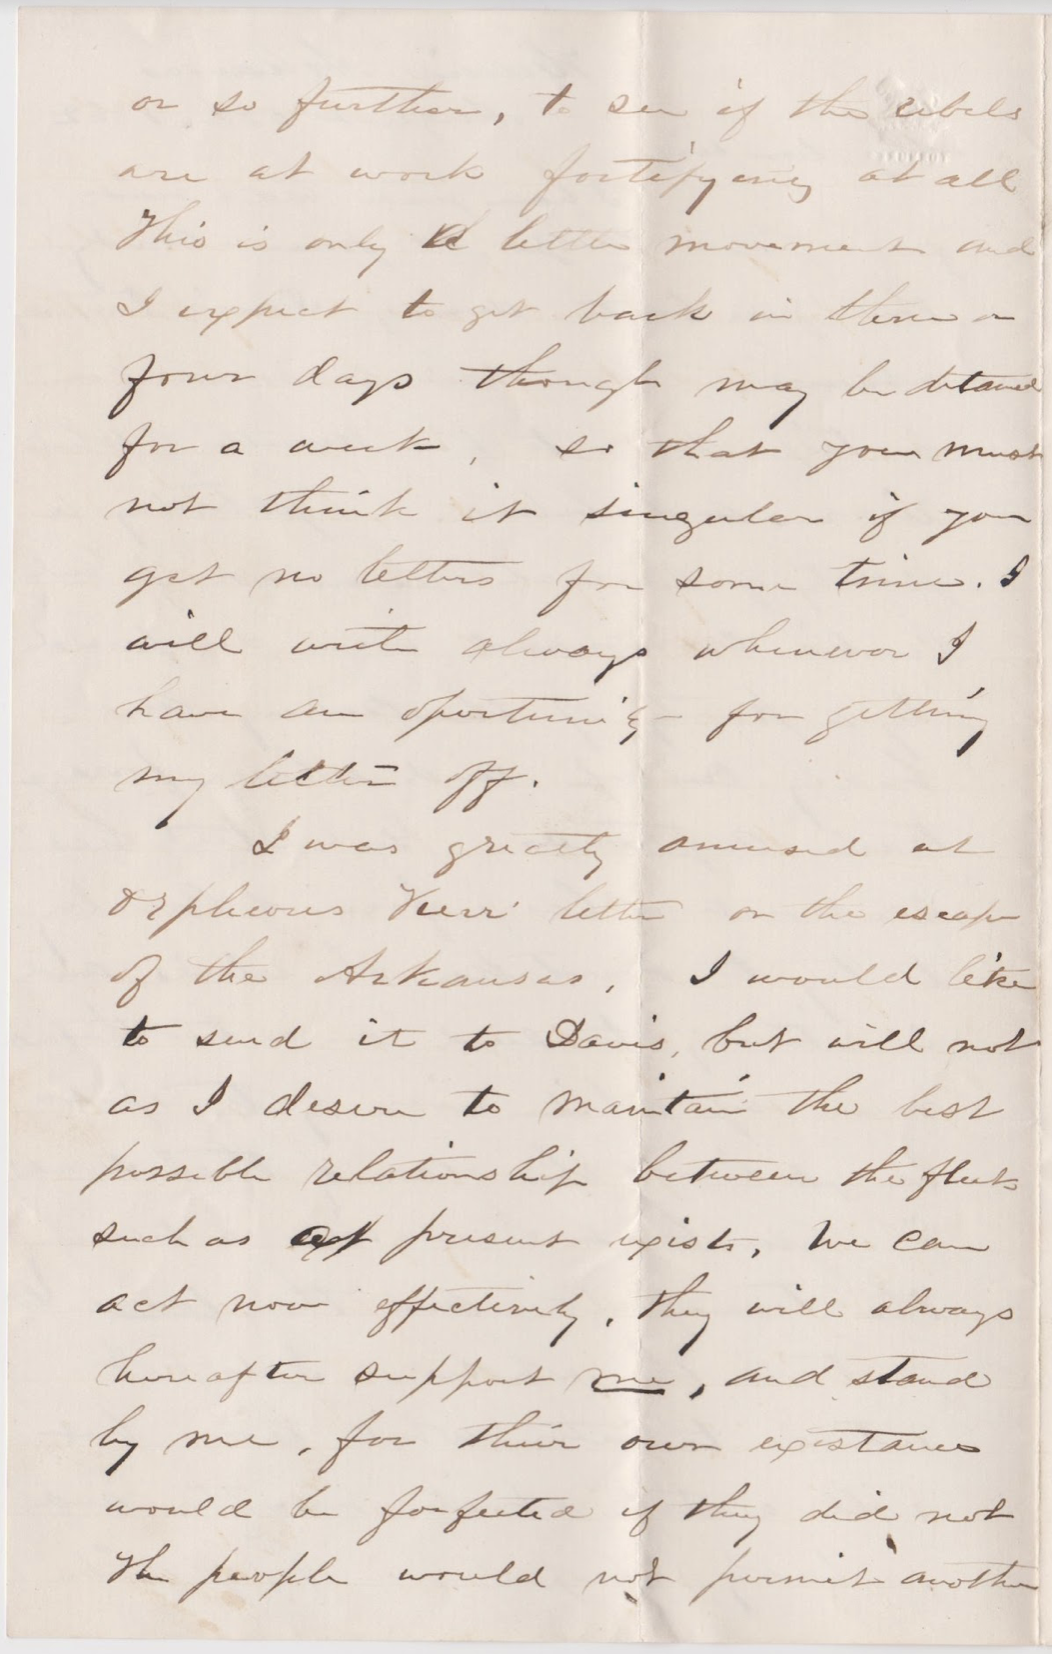 or so further, to see if the rebels
are at work fortifying at all
This is only a little movement and
I expect to get back in three or
four days though may be detained
for a week, so that you must
not think it singular if you
get no letters for some time. I
will write always whenever I
have an oportunity for getting
my letters off.
I was greatly amused at
Orpheous Kerr letter on the escape
of the Arkansas, I would like
to send it to Davis, but will not
as I desire to maintain the best
possible relationship between the fleets
such as at present exists. We can
act now effectively, they will always
hereafter support me, and stand
by me, for their own existance
would be forfeited if they did not
The people would not permit another